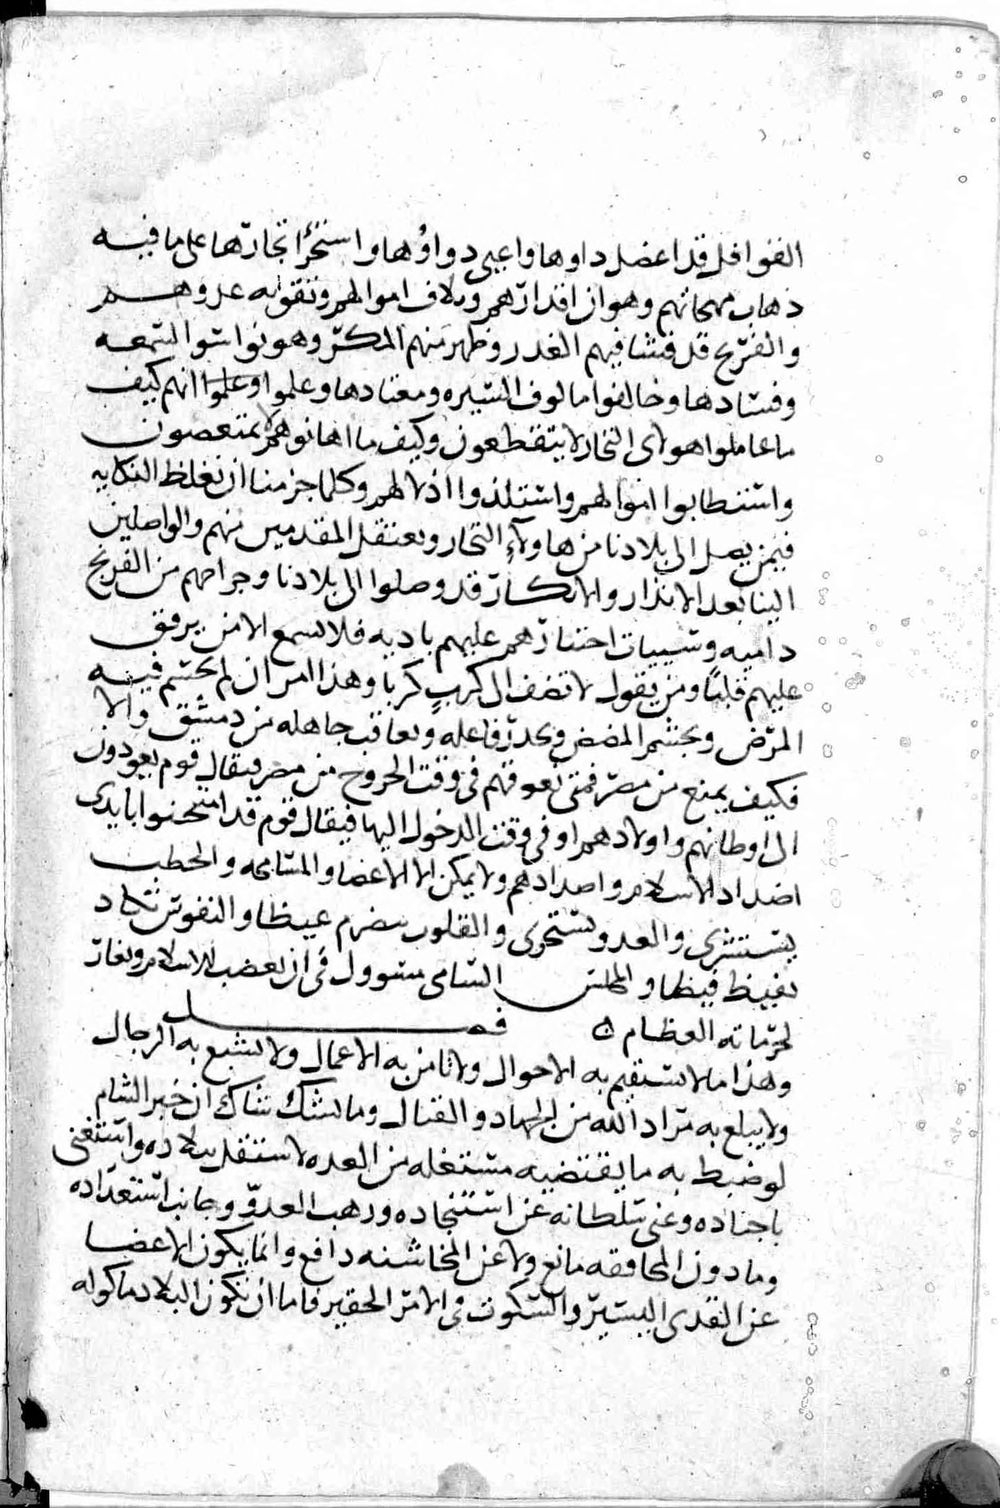 القوافل قد اعضل داوها واعيى دواؤها واستجرا تجارها على ما فيه
ذهاب مهجاتهم وهوان اقدارهم وتلاف اموالهم وتقويه عدوهم
والفرنج قد فشا فيهم الغدر وظهر منهم المكر وهونوا سوا السمعه
وفسادها وخالفوا مالوف السيره ومعتادها وعلموا وعلموا انهم كيف
ما عاملوا هولاى التجار لا يتقطعون وكيف ما اهانوهم لا يمتعصون
واستطابوا اموالهم واستلذوا اذلالهم وكلما جزمنا ان نغلظ النكايه
فيمن يصل الى بلادنا من هاولاء التجار ونعتقل المقدمين منهم والواصلين
الينا بعد الانذار والانكار قد وصلوا الى بلادنا وجراحهم من الفرنج
داميه وسيات اختيارهم عليهم باديه فلا نسمع الا من يرفق
عليهم قلبا ومن يقول لا تضف الى كرب كربا وهذا امر ان لم يحسم فيه
المرض ويجتسم المضض ويحذر فاعله ويعاقب جاهله من دمشق والا
فكيف يمنع من مصر فمتى نعوقهم فى وقت الخروج من مصر فيقال قوم يعودون
الى اوطانهم واولادهم او فى وقت الدخول اليها فيقال قوم قد امتحنوا بايدى
اضداد الاسلام واضدادهم ولا يمكن الا الاغضا والمسامحه والخطب
يستشرى والعدو يستجرى والقلوب تضرم غيظا والنفوس تكاد
تفيظ فيظا والمجلس السامى مسوول فى ان يغضب للاسلام ويغار
لحرماته العظام ه فصل
وهذا ما لا تستقيم به الاحوال ولا تامن به الاعمال ولا تشبع به الرجال
ولا يبلغ به مراد الله من الجهاد والقتال وما يشك شاك ان خبر الشام
لو ضبط به ما يقتضيه مستغله من العده لاستقل ببلاده واستغنى
باجناده وغنى سلطانه عن استنجاده ورهب العدو وجانب استعداده
وما دون المحاققه مانع ولا عن المخاشنه دافع وانما يكون الاغضا
عن القدى اليسير والسكوت فى الامر الحقير فاما ان تكون البلاد ماكوله